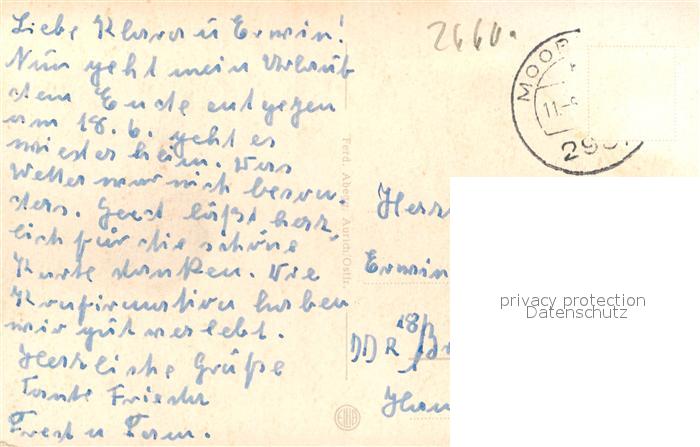 Liebe Klara u Erwin!
Nun geht mein Urlaub
dem Ende entgegen
am 18. 6. geht es
wieder heim. Das
Wetter war nich beson
ders. Gerd läßt herz,
lich für die schöne
Karte danken. Die
Konfirmation haben
wir gut verlebt.
Herzliche Grüße
Tante Frieda
Fred u Fam.
2660.
MOOR
11.-
Ferd. Abeng, Aurich/Ostfr.
Herr
Erwin
DDR
18
Hau
privacy protection
Datenschutz